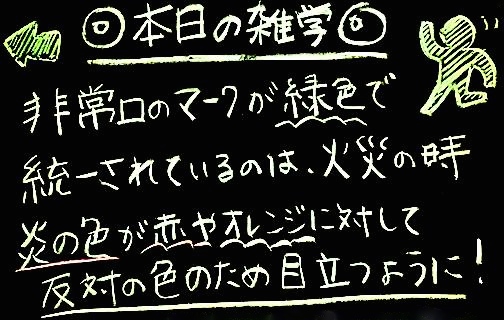 ◎本日の雑学◎
非常口のマークが緑色で
統一されているのは、火災の時
炎の色が赤やオレンジに対して
反対の色のため目立つように!